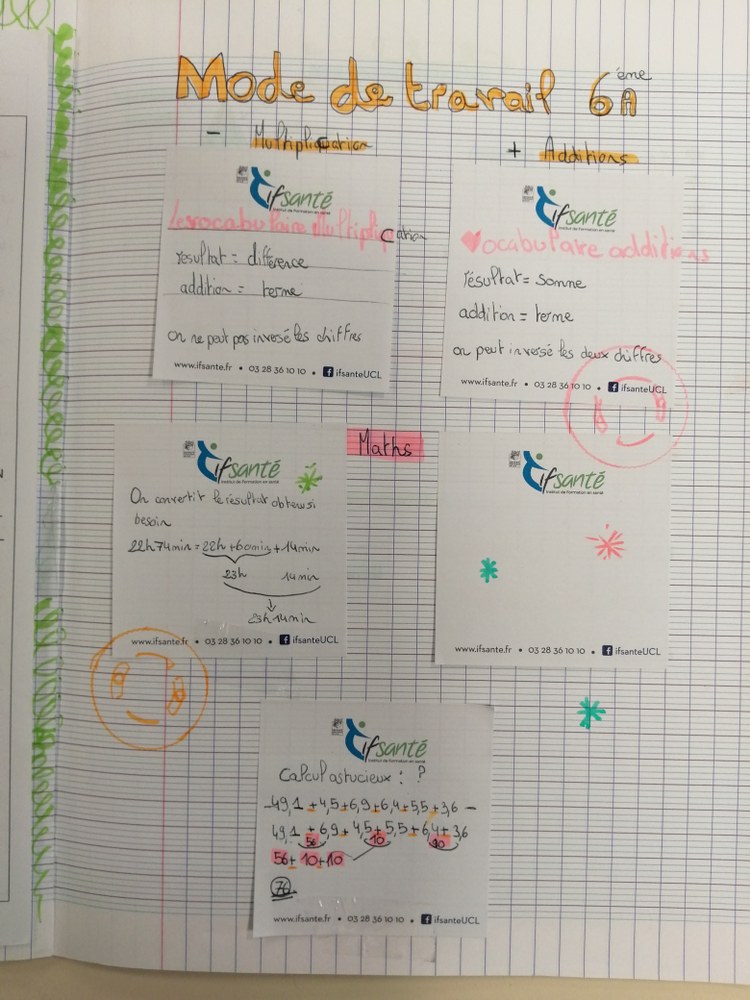 Mode de travail 6ème A
- Multiplication
+ Additions
ifsanté
Institut de Formation en santé
Le vocabulaire Multiplication
résultat = différence
addition = terme
on ne peut pas inversé les chiffres
www.ifsante.fr • 03 28 36 10 10 • ifsanteUCL
ifsanté
Institut de Formation en santé
Vocabulaire additions
résultat = somme
addition = terme
on peut inversé les deux chiffres
www.ifsante.fr • 03 28 36 10 10 • ifsanteUCL
Maths
ifsanté
Institut de Formation en santé
On convertit le résultat obtenu si
besoin
22h74min = 22h + 60min + 14min
23h 14min
23h14min
www.ifsante.fr • 03 28 36 10 10 • ifsanteUCL
ifsanté
Institut de Formation en santé
www.ifsante.fr • 03 28 36 10 10 • ifsanteUCL
ifsanté
Institut de Formation en santé
Calcul astucieux : ?
-49,1 + 4,5 + 6,9 + 6,4 + 5,5 + 3,6 -
49,1 + 6,9 + 4,5 + 5,5 + 6,4 + 3,6
56 10
56 + 10 + 10
76
www.ifsante.fr • 03 28 36 10 10 • ifsanteUCL